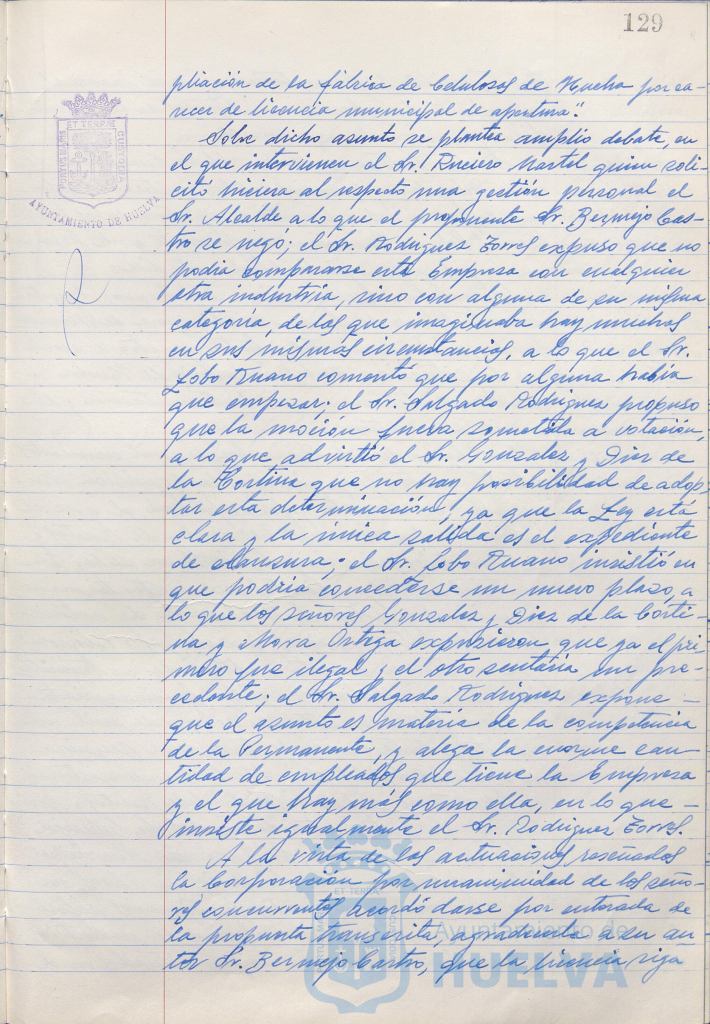 129
pliación de la fábrica de Celulosas de Huelva por ca-
recer de licencia municipal de apertura".
Sobre dicho asunto se plantea amplio debate, en
el que intervienen el Sr. Ruciero Martel quien soli-
citó hiciera al respecto una gestión personal el
Sr. Alcalde a lo que el proponente Sr. Bermejo Cas-
tro se negó; el Sr. Rodríguez Torres expuso que no
podía compararse esta Empresa con cualquier
otra industria, sino con alguna de su misma
categoría, de las que imaginaba hay muchas
en sus mismas circunstancias, a lo que el Sr.
Lobo Ruano comentó que por alguna había
que empezar; el Sr. Salgado Rodríguez propuso
que la moción fuera sometida a votación,
a lo que advirtió el Sr. Gonzalez y Diez de
la Cortina que no hay posibilidad de adop-
tar esta determinación, ya que la Ley está
clara y la única salida es el expediente
de clausura; el Sr. Lobo Ruano insistió en
que podría concederse un nuevo plazo, a
lo que los señores Gonzalez y Diez de la Corti-
na y Mora Ortega expusieron que ya el pri-
mero fue ilegal y el otro sentaría un pre-
cedente; el Sr. Salgado Rodríguez expone -
que el asunto es materia de la competencia
de la Permanente, y alega la enorme can-
tidad de empleados que tiene la Empresa
y el que hay más como ella, en lo que -
insiste igualmente el Sr. Rodríguez Torres.
A la vista de las actuaciones reseñadas
la Corporación por unanimidad de los seño-
res concurrentes acordó darse por enterada de
la propuesta transcrita, agradecerla a su au-
tor Sr. Bermejo Castro, que la licencia siga
AYUNTAMIENTO DE HUELVA
Ayuntamiento de
HUELVA